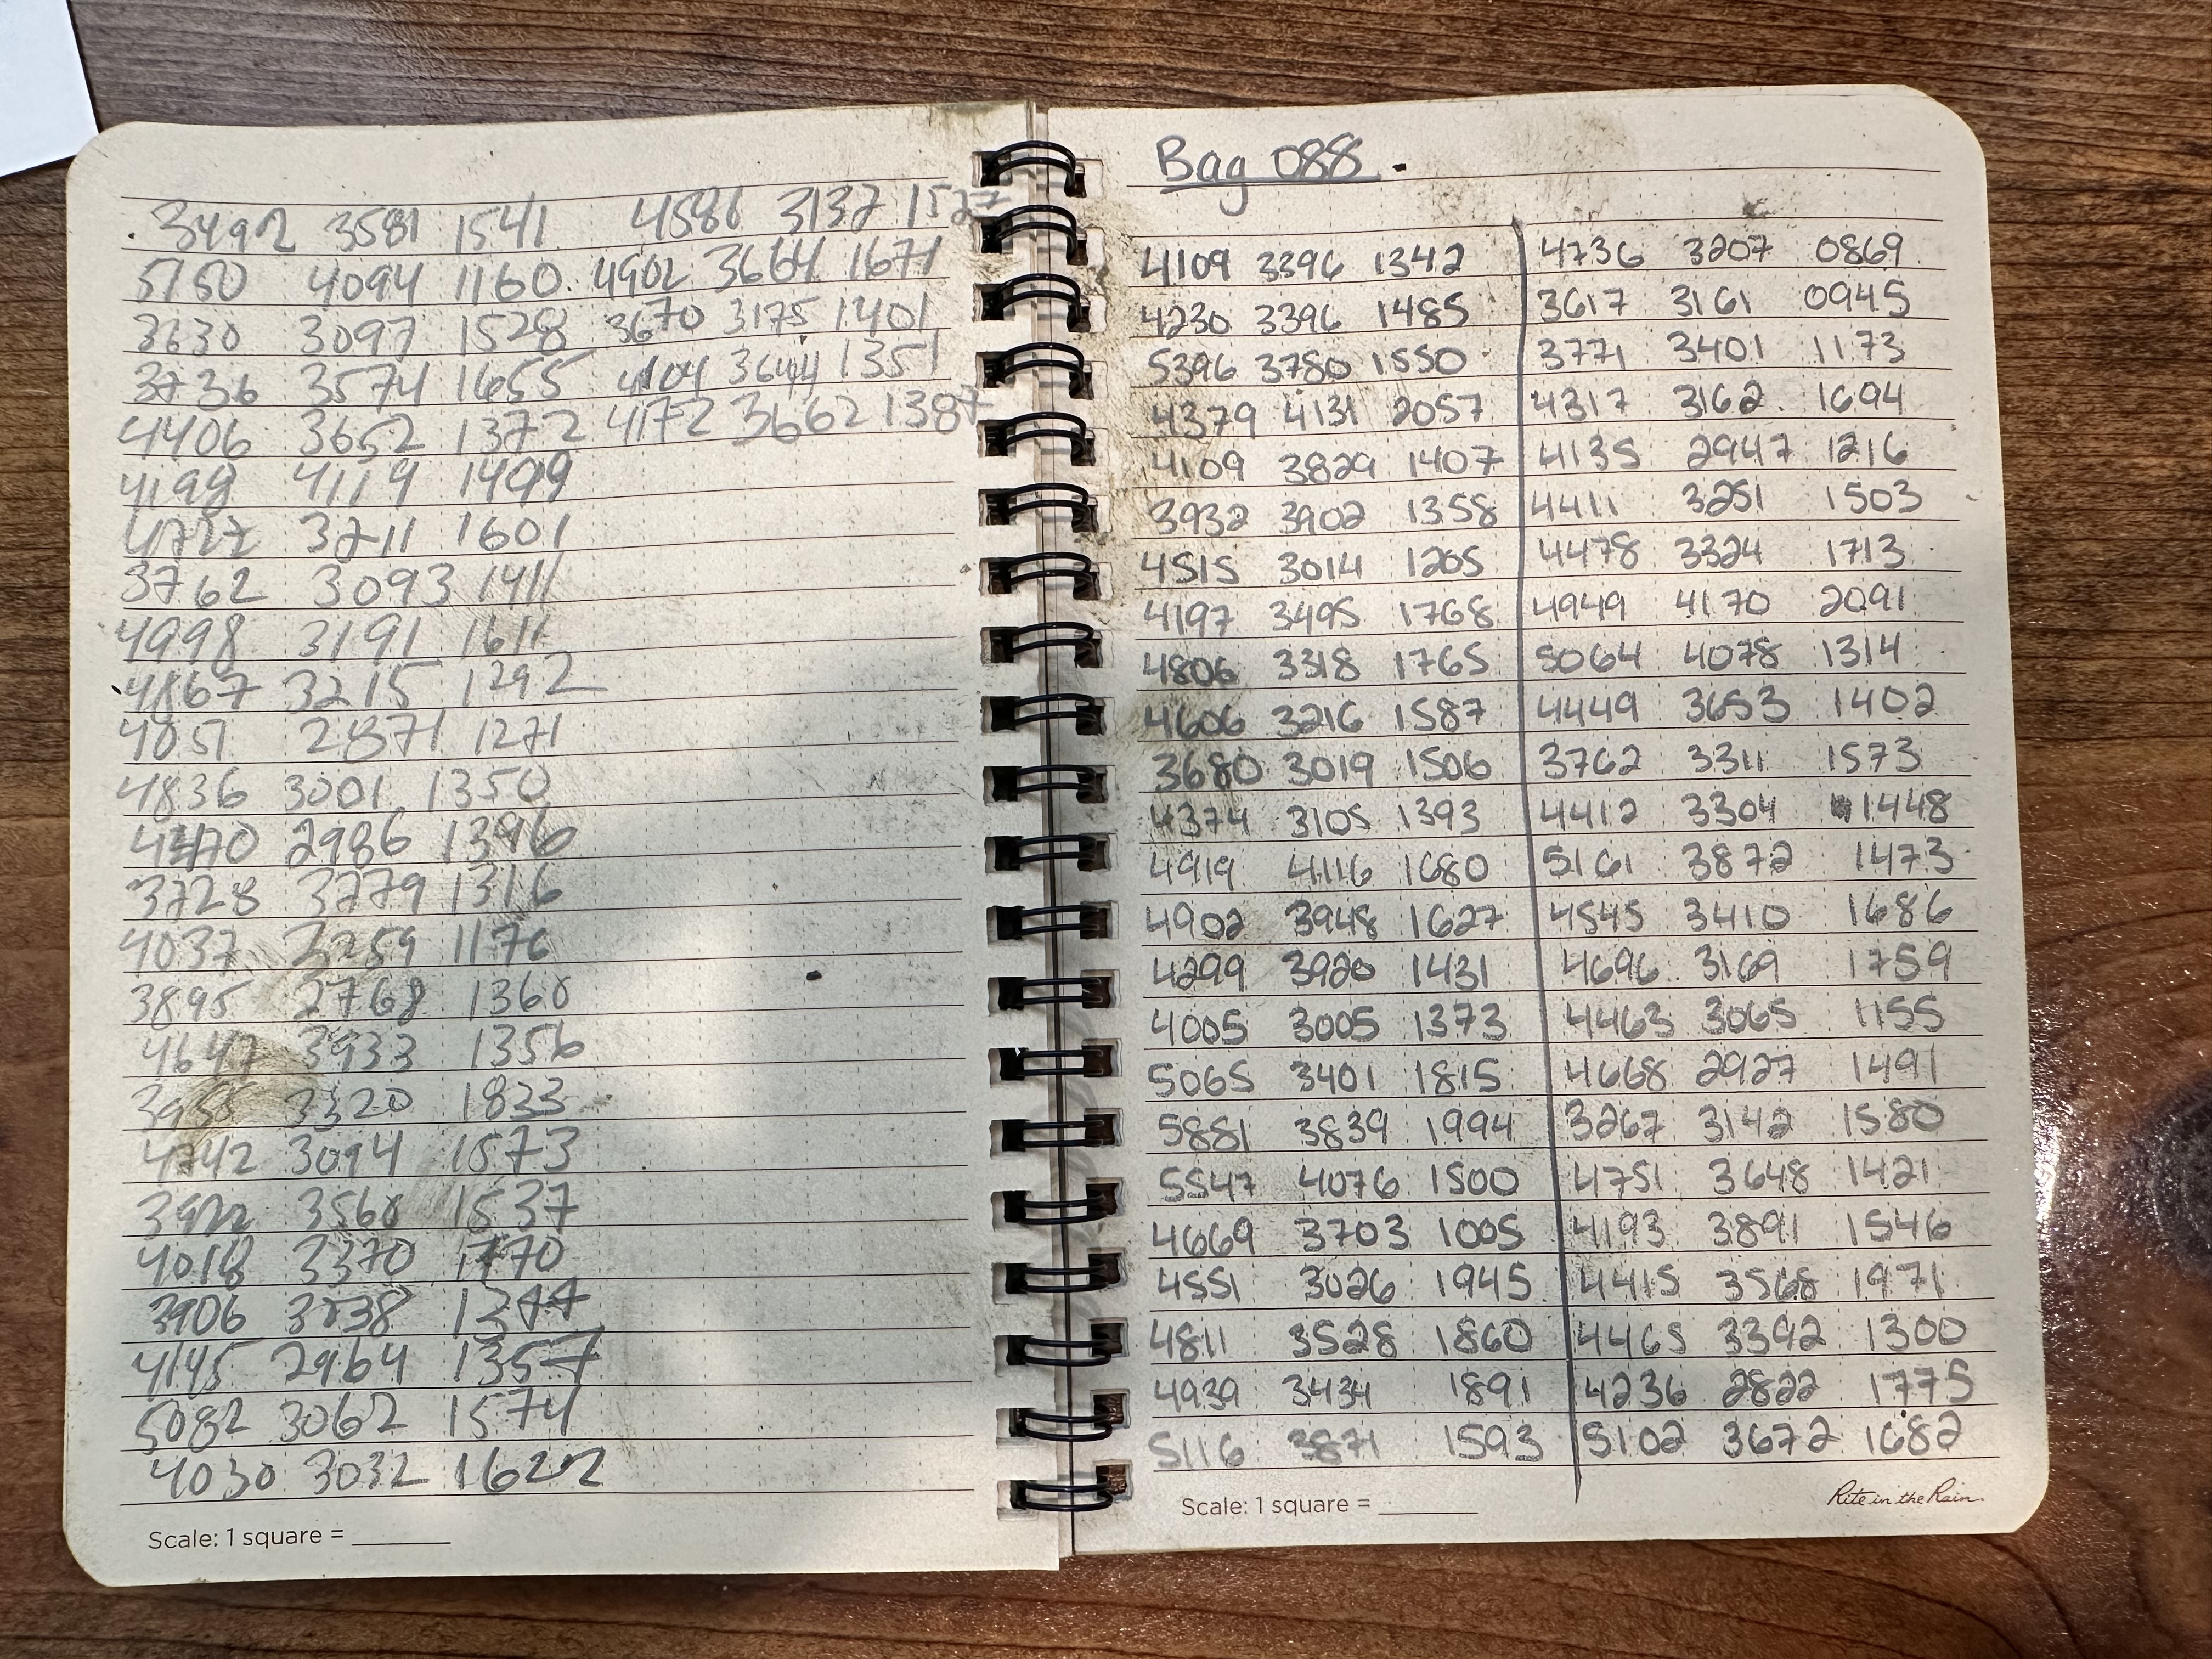 3492 3581 1541 4586 3137 1527
5150 4094 1160 4902 3664 1671
3630 3097 1528 3670 3175 1401
3736 3574 1655 4104 3644 1351
4406 3652 1372 4172 3662 1387
4199 4119 1499
4727 3211 1601
3762 3093 1411
4998 3191 1611
4867 3215 1292
4051 2871 1271
4836 3001 1350
2986 1396
3728 3279 1316
4037 1176
3895 2768 1360
4647 3933 1356
3320 1833
4742 3094 1573
3922 3560 1537
4018 3370 1770
3906
4145 2964 1357
5082 3062 1574
4030 3032 1622
Scale: 1 square =
Bag 088
4109 3396 1342 4736 3207 0869
4230 3396 1485 3617 3161 0945
5396 3780 1550 3771 3401 1173
4379 4131 2057 4317 3162 1694
4109 3829 1407 4135 2947 1216
3932 3902 1358 4411 3251 1503
4515 3014 1205 4478 3324 1713
4197 3495 1768 4949 4170 2091
4806 3318 1765 5064 4078 1314
4606 3216 1587 4449 3653 1402
3680 3019 1506 3762 3311 1573
4374 3105 1393 4412 3304 1448
4919 4116 1680 5161 3872 1473
4902 3948 1627 4545 3410 1686
4299 3920 1431 4696 3169 1759
4005 3005 1373 4463 3065 1155
5065 3401 1815 4668 2927 1491
5881 3839 1994 3267 3142 1580
5547 4076 1500 4751 3648 1421
4669 3703 1005 4193 3891 1546
4551 3026 1945 4415 3568 1971
4811 3528 1860 4465 3392 1300
4939 3434 1891 4236 2822 1775
5116 3871 1593 5102 3672 1682
Scale: 1 square =
Rite in the Rain.